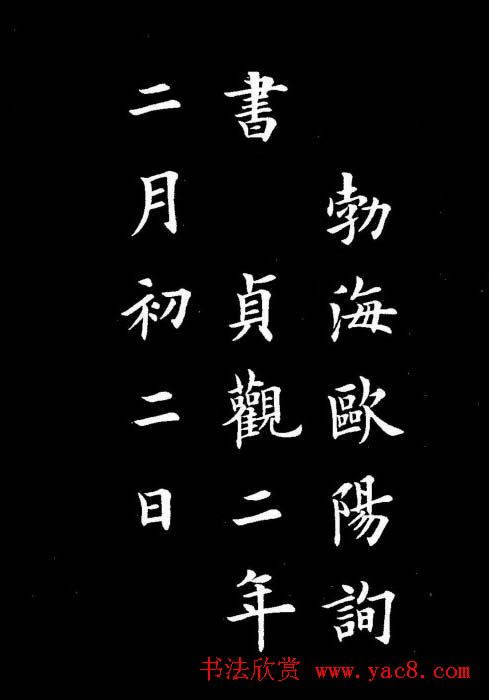 勃海歐陽詢
書 貞觀二年
二月初二日
书法欣赏 www.yac8.com